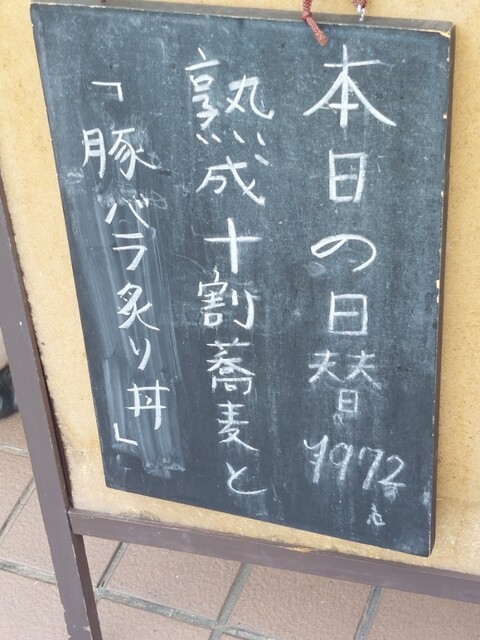 本日の日替 1972
熟成十割蕎麦と
「豚バラ炙り丼」